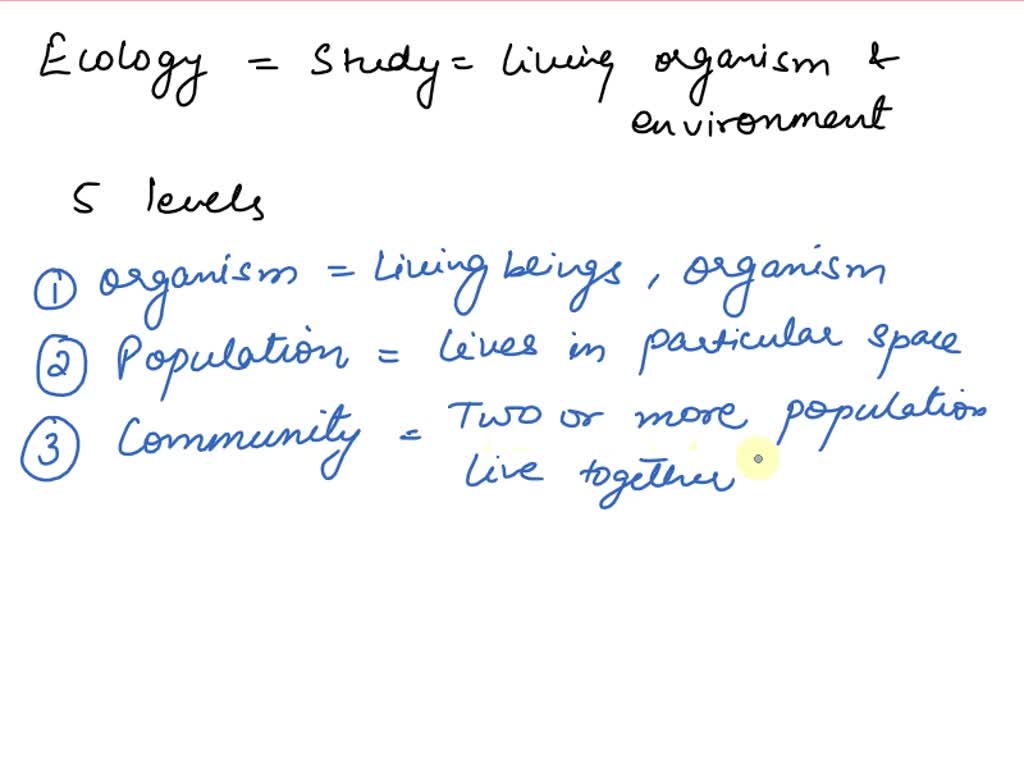 Ecology = Study = Living organism &
environment
5 levels
① organism = Living beings, organism
② Population = Lives in particular space
③ Community = Two or more population
live together